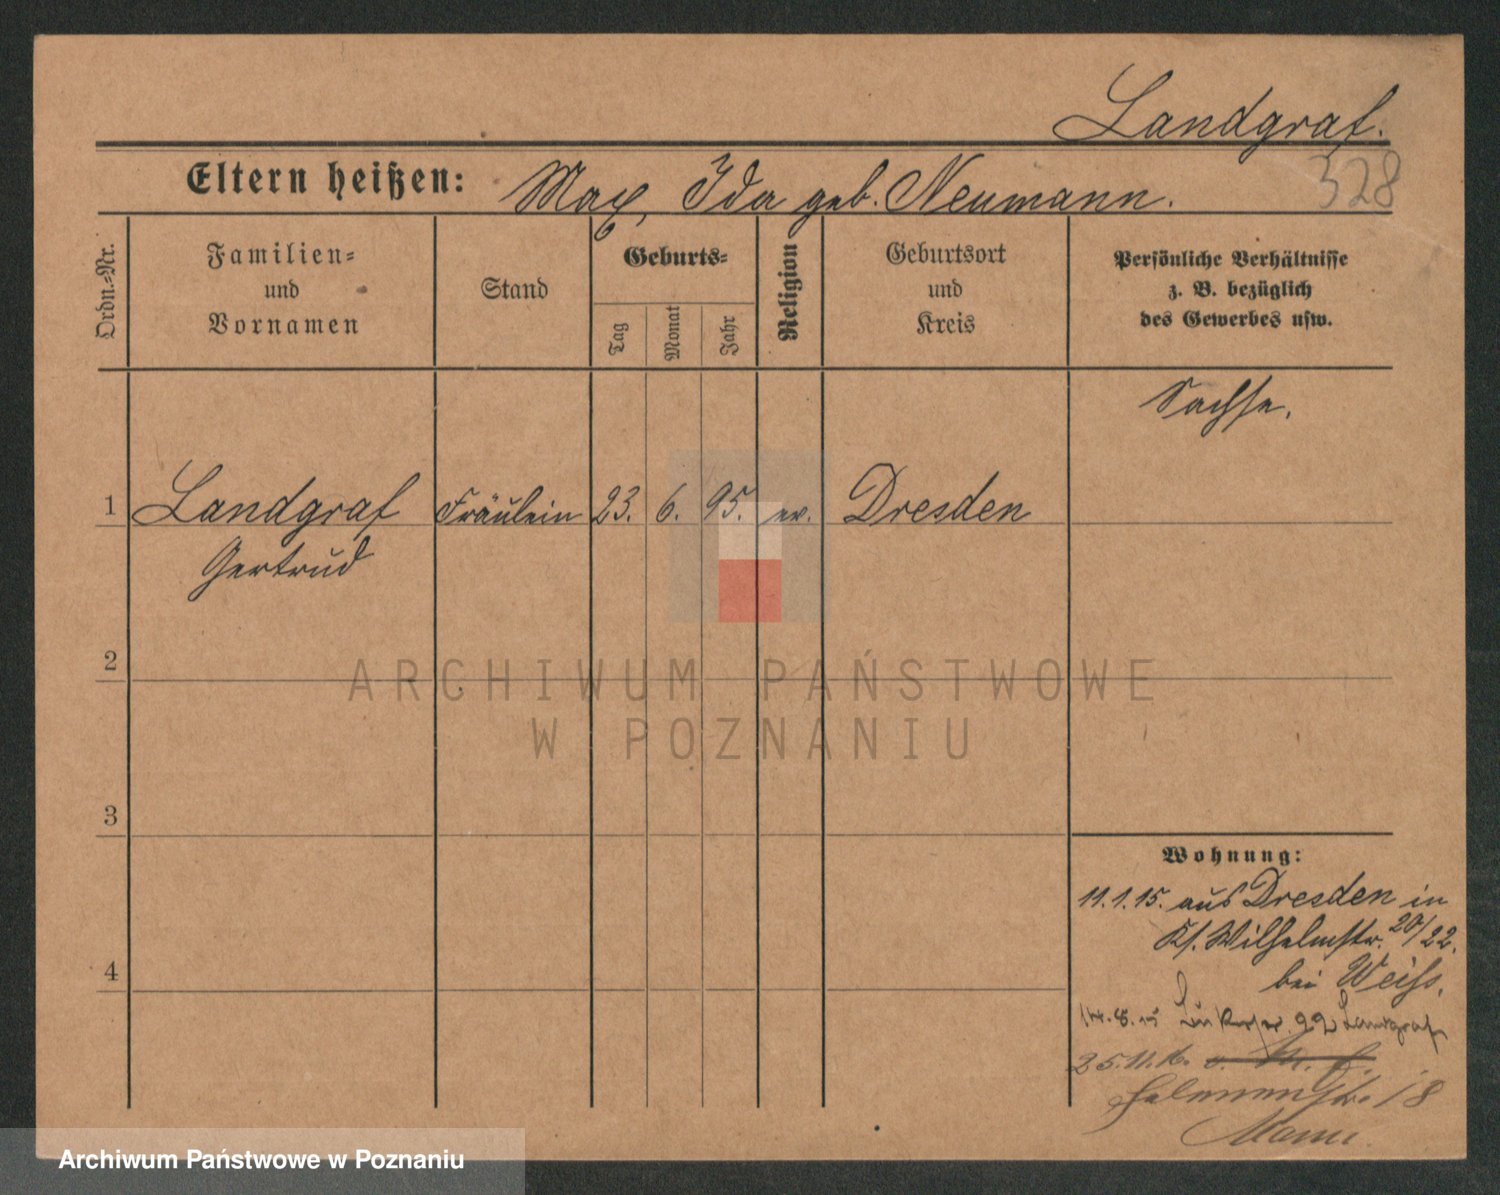 Landgraf.
328
Eltern heißen: Max, Ida geb. Neumann.
Ordn.-Nr.
Familien-
und
Vornamen
Stand
Geburts-
Tag
Monat
Jahr
Religion
Geburtsort
und
Kreis
Persönliche Verhältnisse
z. B. bezüglich
des Gewerbes usw.
Sachse.
1 Landgraf Fräulein 23. 6. 95. ev. Dresden
Gertrud
2
ARCHIWUM PAŃSTWOWE
W POZNANIU
3
Wohnung:
11.1.15. aus Dresden in
Kl. Wilhelmstr. 20/22.
bei Weiss.
4
14.8.15 22 Landgraf
25.11.16.
Helenenstr. 18
Archiwum Państwowe w Poznaniu